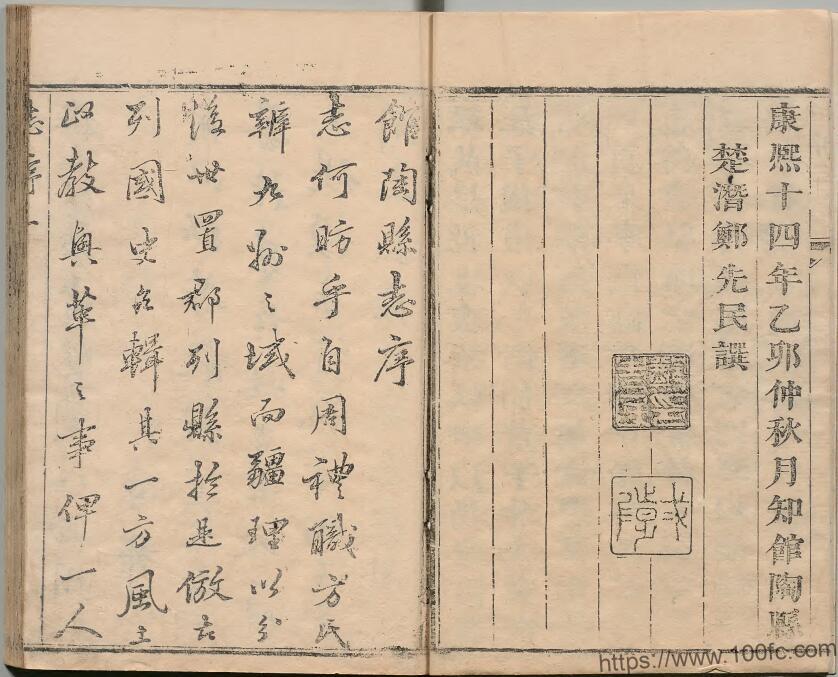 康熙十四年乙卯仲秋月知館陶縣
楚潛鄭先民譔
館陶縣志序
志何昉乎自周禮職方氏
辨九州之域而疆理以分
後世置郡列縣於是倣古
列國史各輯其一方風土
政教興革之事俾一人
志序一
https://www.100fc.com